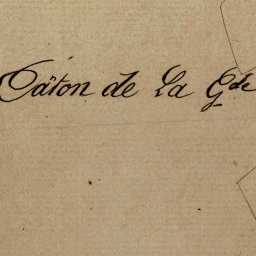 Bâton de La Gde